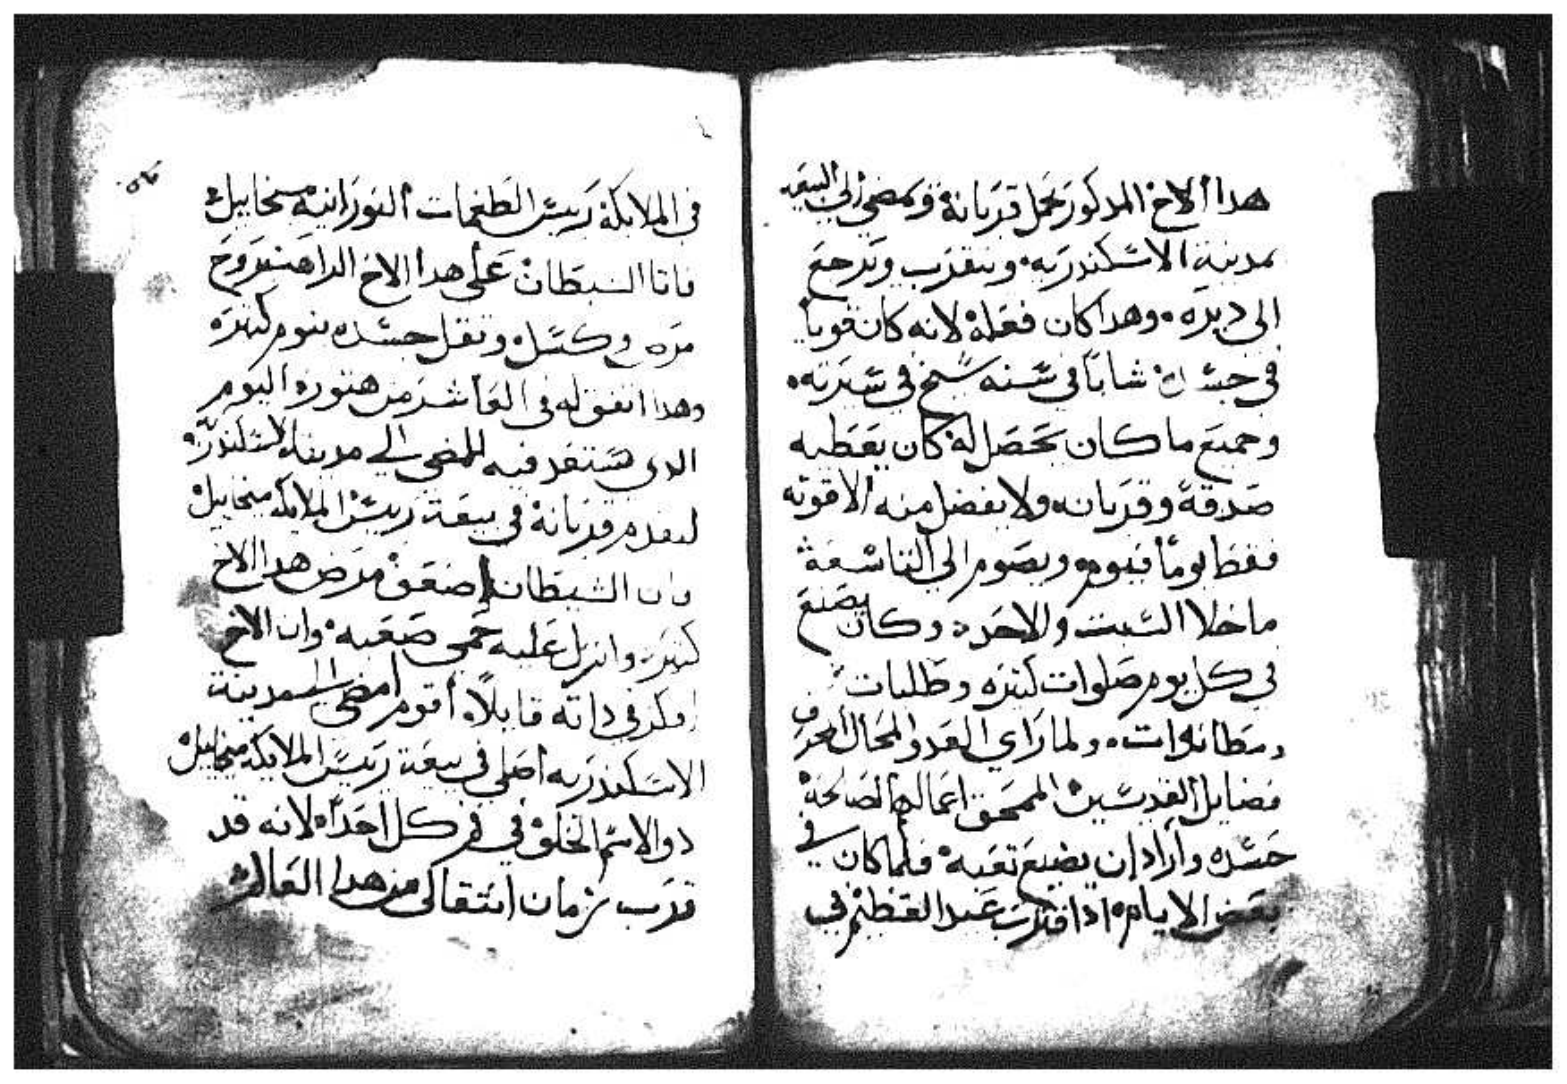 هدا الاخ المدكور يحمل قربانه ويمضي الي البيعه
بمدينة الاسكندريه وتيقرب ويرجع
الى ديره وهدا كان فعله لانه كان قويا
في جسده شابا في سنه شيخ في سيرته
وجميع ما كان يحصل له كان يعطيه
صدقة وقربانه ولا يفضل منه الا قوته
فقط يوما فيوم ويصوم الي التاسعة
ما خلا السبت والاحد وكان يصنع
في كل يوم صلوات كثيره وطلبات
ومطانوات ولما راي العدو المحال
فضايل القديسين الممحق اعمالهم الصالحة
حسده واراد ان يصنع تعبه فلما كان في
بعض الايام ادا اقترب عيد العظيم في
في الملايكة رييس الطغمات النورانيه ميخاييل
فاتا الشيطان على هدا الاخ الراهب بروح
مره وكسل وتقل جسده بنوم كثيره
وهدا اتفق له في العاشر من هتور اليوم
الدى يستعد فيه للمضى الي مدينة الاسكندريه
ليقدم قربانه في بيعة رييس الملايكة ميخاييل
وان الشيطان اضعف مرض هدا الاخ
كثير وانزل عليه حمى صعبه وان الاخ
افكر في داته قايلا اقوم امضى الى مدينة
الاسكندريه اصلى في بيعة رييس الملايكة ميخاييل
دو الاسم الحلو في فم كل احد لانه قد
قرب زمان انتقالى من هدا العالم